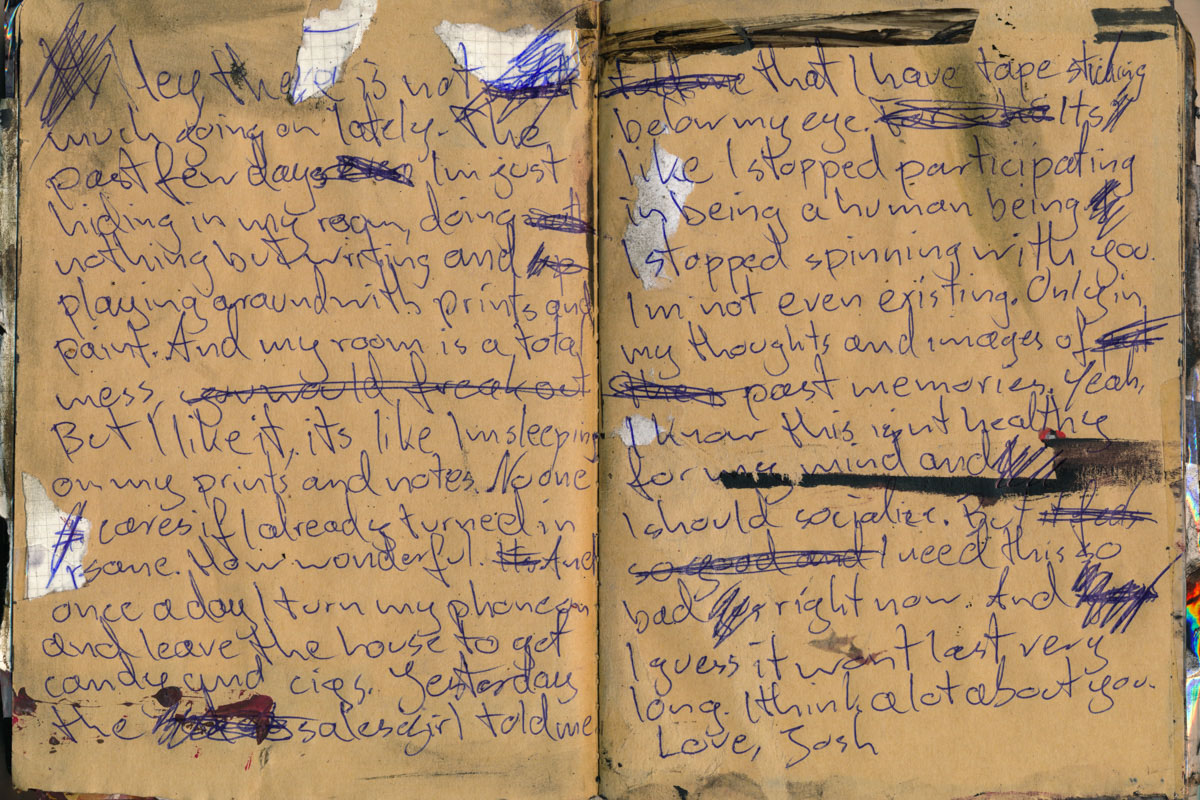 ley, there is not
much going on lately. The
past few days I'm just
hiding in my room, doing
nothing but writing and
playing around with prints and
paint. And my room is a total
mess, you would freak out
But I like it, its like Im sleeping
on my prints and notes. No one
cares if I already turned in
sane. How wonderful. Its And
once a day I turn my phone on
and leave the house to get
candy and cigs. Yesterday
the salesgirl told me
that I have tape sticking
below my eye. Its
like I stopped participating
in being a human being
I stopped spinning with you.
I'm not even existing. Only in
my thoughts and images of
past memories. Yeah,
I know this isnt healthy
for my mind and
I should socialize. But it feels
so good and I need this so
bad right now. And
I guess it wont last very
long. I think a lot about you.
Love, Josh